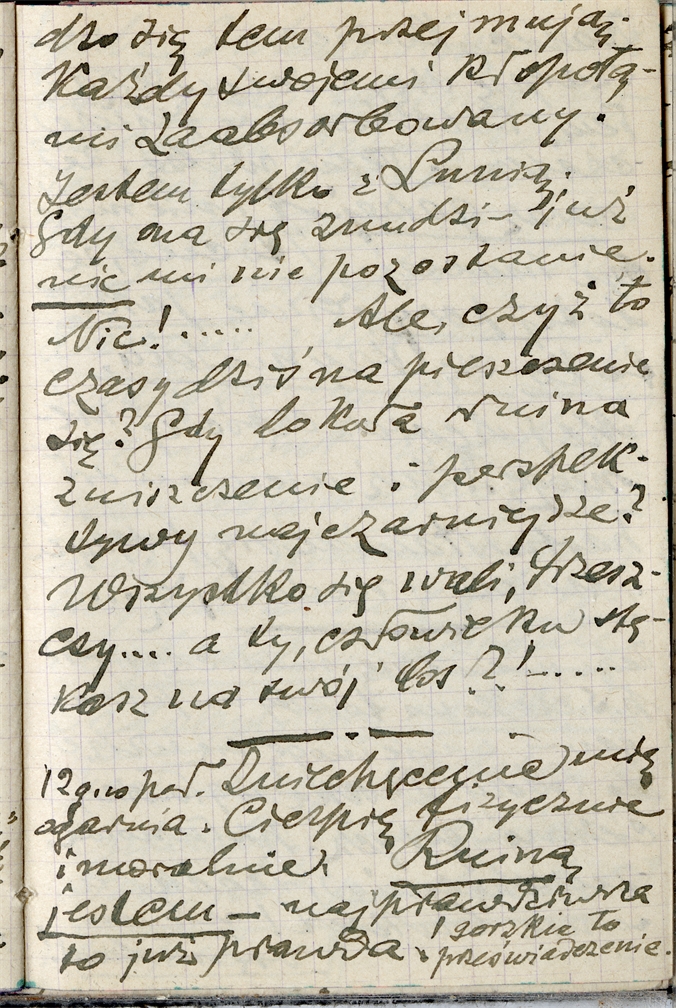 dzo się tem przejmują.
Każdy swojemi kłopota-
mi zaabsorbowany.
Jestem tylko z Lunią.
Gdy ona się znudzi – już
nic mi nie pozostanie.
Nic!..... Ale, czyż to
czasy dziś na pieszczenie
się? Gdy dokoła ruina
zniszczenie i perspek-
tywy najczarniejsze?
Wszystko się wali, trzesz-
czy.... a ty, człowieku stę-
kasz na swój los?!.....
12 g. w poł. Zniechęcenie mię
ogarnia. Cierpię fizycznie
i moralnie. Ruiną
jestem – najprawdziwsza
to już prawda
! gorzkie to
przeświadczenie.